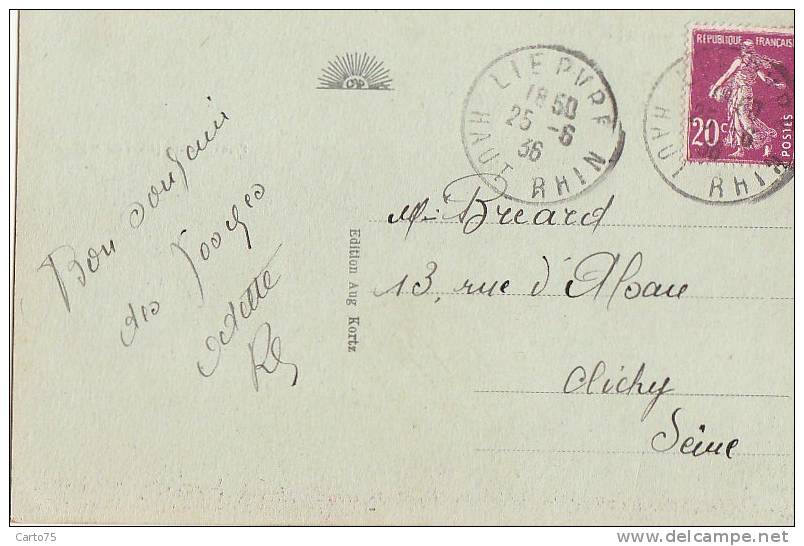 Bon souvenir
des Vosges
Odette
Edition Aug Kortz
LIEPVRE
18 50
25 -6
36
HAUT RHIN
REPUBLIQUE FRANCAISE
20c
POSTES
LIEPVRE
HAUT RHIN
Breard
13, rue d'Alsace
Clichy
Seine
Carto75
http://www.delcampe.net